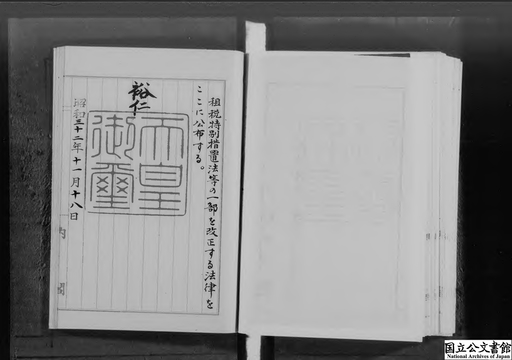 租税特別措置法等の一部を改正する法律を
ここに公布する。
裕仁
天皇
御璽
昭和三十二年十一月十八日
内閣
国立公文書館
National Archives of Japan